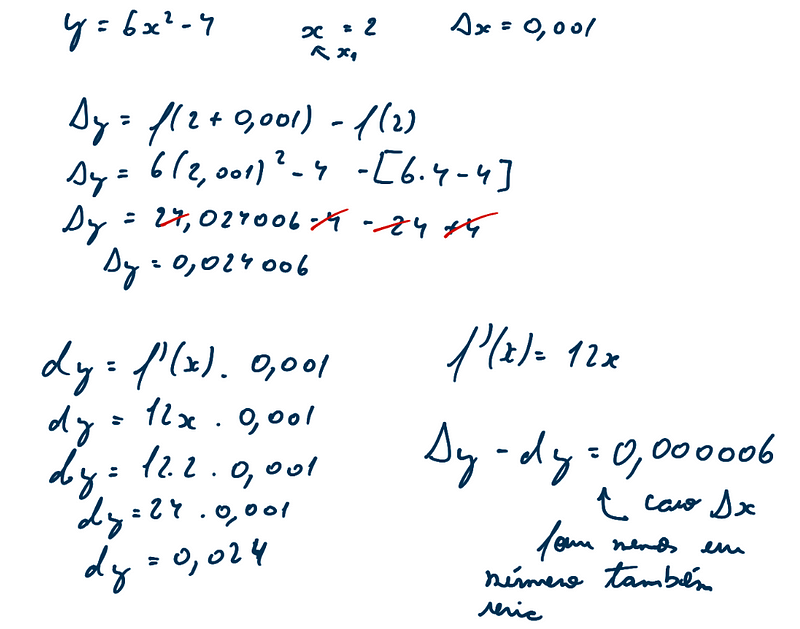 y = 6x² - 4    x = 2    Δx = 0,001
↖ x₁
Δy = f(2 + 0,001) - f(2)
Δy = 6(2,001)² - 4 - [6.4 - 4]
Δy = 24,024006 - 4 - 24 + 4
Δy = 0,024006
dy = f'(x) . 0,001
dy = 12x . 0,001
dy = 12.2 . 0,001
dy = 24 . 0,001
dy = 0,024
f'(x) = 12x
Δy - dy = 0,000006
caso Δx
menos em
número também